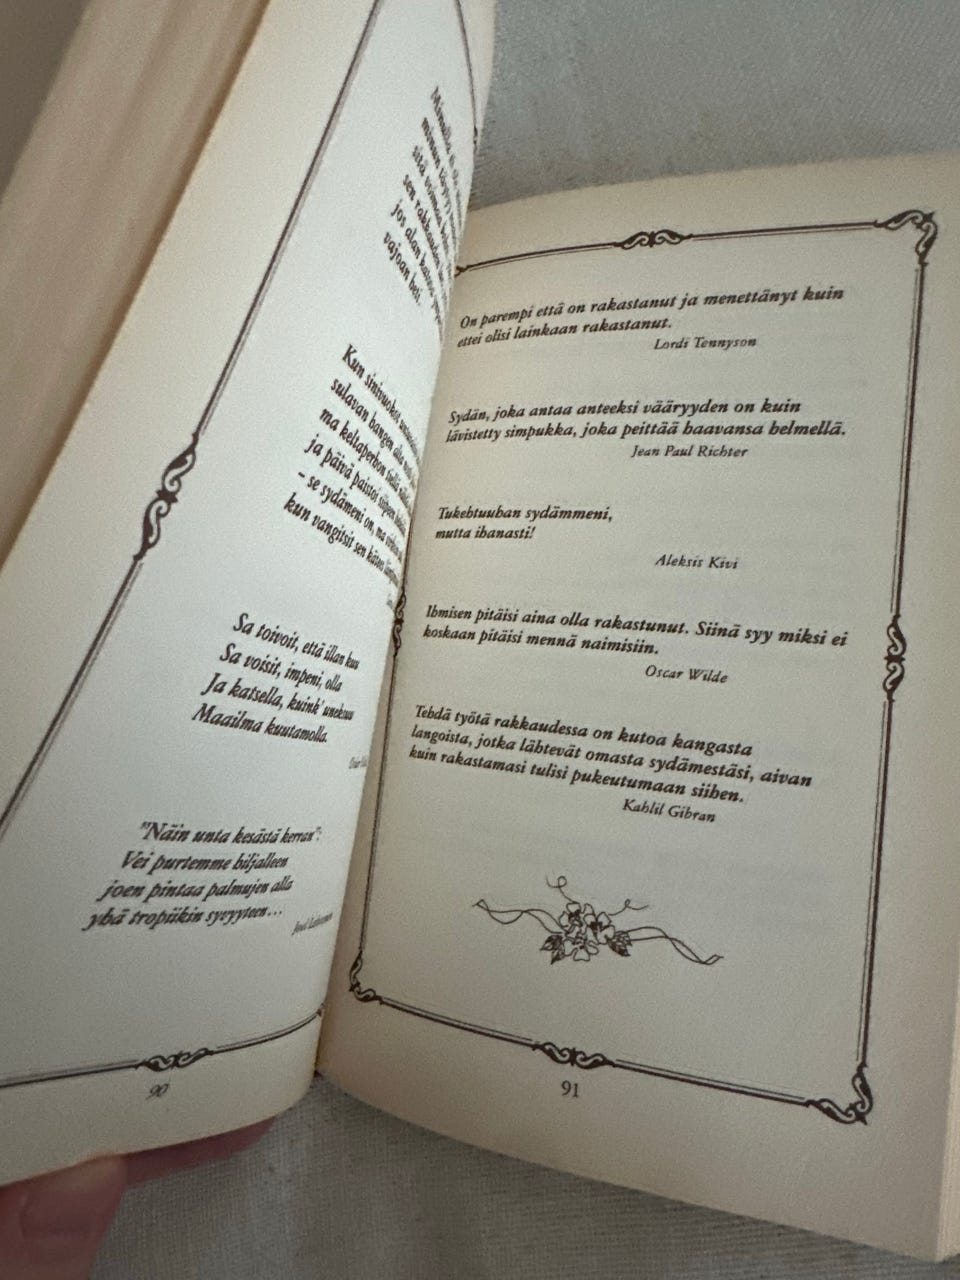 minun täytyy
sitä voimaa
sen rakkauden
jos alan katsoa
vajoan heti.
Kun sinivuokot
sulavan hangen alta
ma keltaperhon
ja päivä paistoi siipeen
– se sydämeni on, ma
kun vangitsit sen
Sa toivoit, että illan kuu
Sa voisit, impeni, olla
Ja katsella, kuink' uneksuu
Maailma kuutamolla.
"Näin unta kesästä kerran":
Vei purtemme hiljalleen
joen pintaa palmujen alla
yhä tropiikin syvyyteen...
90
On parempi että on rakastanut ja menettänyt kuin
ettei olisi lainkaan rakastanut.
Lordi Tennyson
Sydän, joka antaa anteeksi vääryyden on kuin
lävistetty simpukka, joka peittää haavansa helmellä.
Jean Paul Richter
Tukehtuuhan sydämmeni,
mutta ihanasti!
Aleksis Kivi
Ihmisen pitäisi aina olla rakastunut. Siinä syy miksi ei
koskaan pitäisi mennä naimisiin.
Oscar Wilde
Tehdä työtä rakkaudessa on kutoa kangasta
langoista, jotka lähtevät omasta sydämestäsi, aivan
kuin rakastamasi tulisi pukeutumaan siihen.
Kahlil Gibran
91